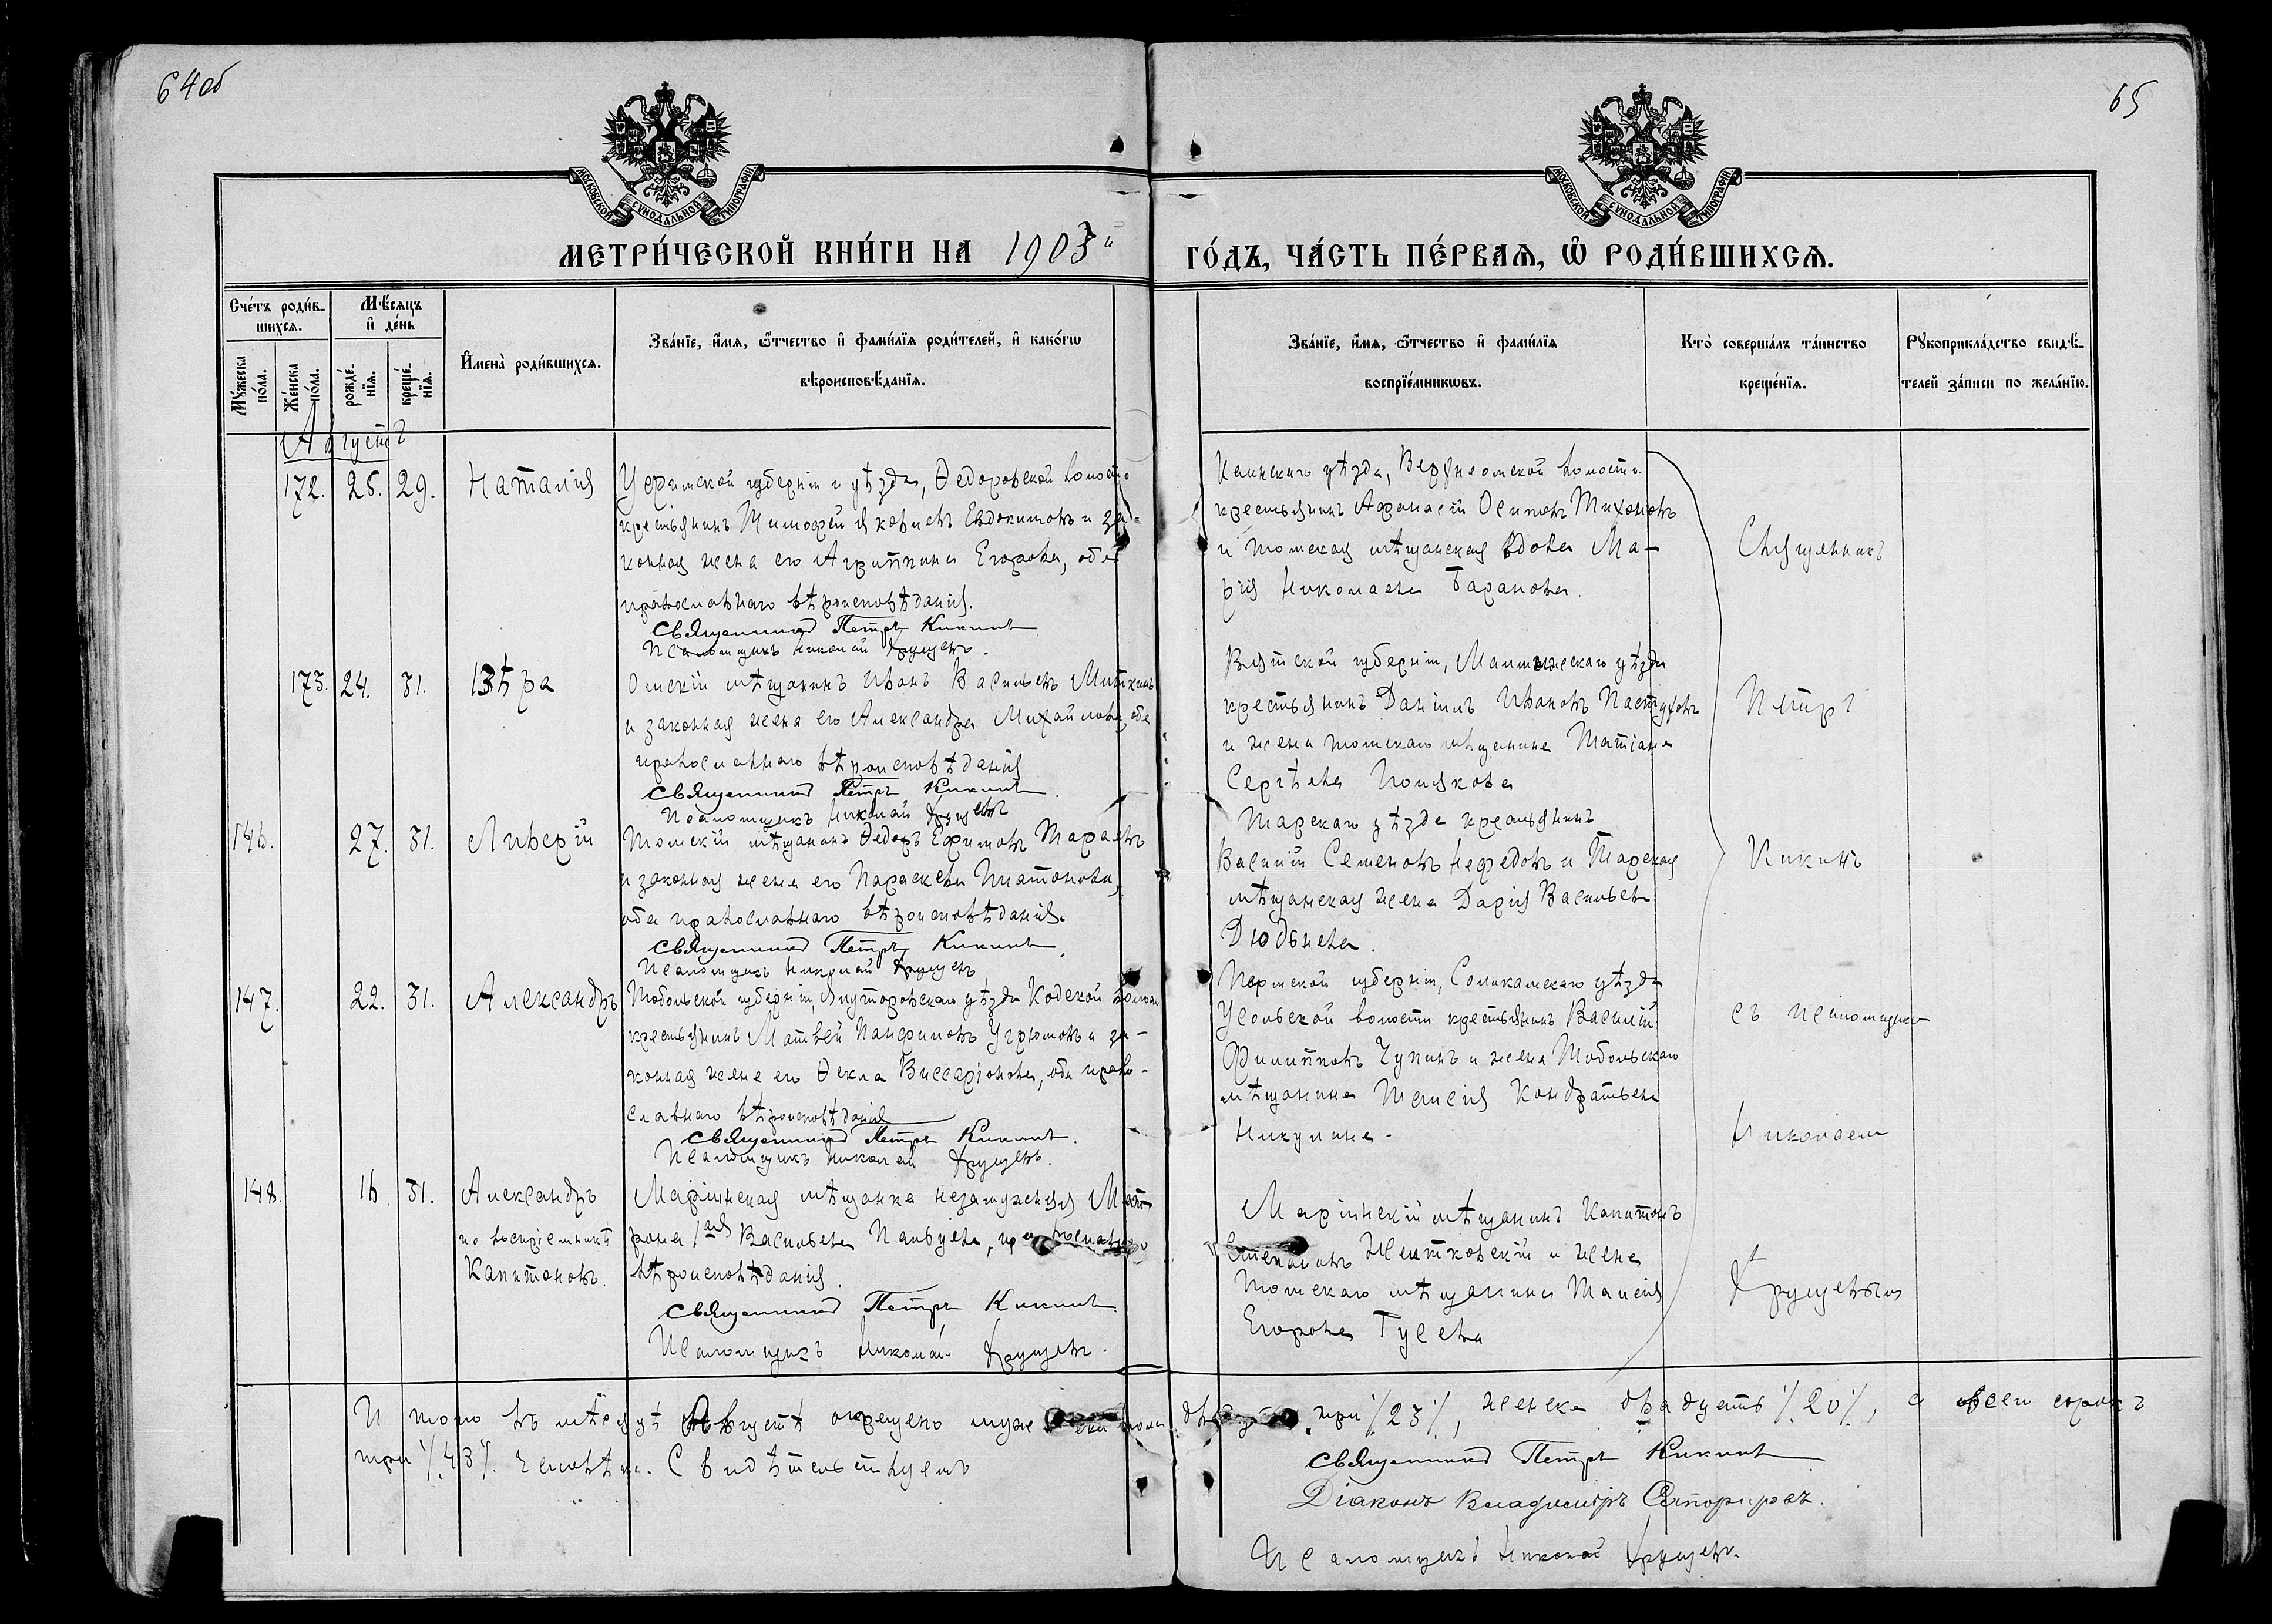 64об
65
МОСКОВСКОЙ СѴНОДАЛЬНОЙ ТИПОГРАФІИ
МОСКОВСКОЙ СѴНОДАЛЬНОЙ ТИПОГРАФІИ
МЕТРИ́ЧЕСКОЙ КНИ́ГИ НА 1903й
ГО́ДЪ, ЧА́СТЬ ПЕ́РВАѦ, Ѡ҆ РОДИ́ВШИХСѦ.
Сче́тъ роди́в-
шихсѧ.
Мꙋ́жеска по́ла.
Же́нска по́ла.
Мѣ́сѧцъ
и҆ де́нь
рожде́-нїѧ.
креще́-нїѧ.
И҆мена̀ роди́вшихсѧ.
Зва́нїе, и҆́мѧ, ѻ҆́тчество и҆ фами́лїѧ роди́телей, и҆ како́гѡ
вѣроисповѣ́данїѧ.
Зва́нїе, и҆́мѧ, ѻ҆́тчество и҆ фами́лїѧ
воспрїе́мникѡвъ.
Кто̀ соверша́лъ та́инство
креще́нїѧ.
Рꙋкоприкла́дство свидѣ́-
телей за́писи по жела́нїю.
Августъ
172. 25. 29. Наталія
Уфимской губерніи и уѣзда, Ѳедоровской волости
крестьянинъ Тимофей Яковлевъ Евдокимовъ и за-
конная жена его Агрипина Егорова, оба
православнаго вѣроисповѣданія.
Священникъ Петръ Кикинъ
Псаломщикъ Николай Хрущевъ.
Каинскаго уѣзда, Верхнеомской волости
крестьянинъ Афанасій Осиповъ Тихоновъ
и томская мѣщанская вдова Ма-
рія Николаева Баранова.
173. 24. 31. Вѣра
Омскій мѣщанинъ Иванъ Васильевъ Миткинъ
и законная жена его Александра Михайлова, оба
православнаго вѣроисповѣданія
Священникъ Петръ Кикинъ.
Псаломщикъ Николай Хрущевъ
Вятской губерніи, Малмыжскаго уѣзда
крестьянинъ Даніилъ Ивановъ Пастуховъ
и жена томскаго мѣщанина Татіана
Сергѣева Полякова
146. 27. 31. Ливерій
Томскій мѣщанинъ Ѳедоръ Ефимовъ Тарасовъ
и законная жена его Параскева Платонова,
оба православнаго вѣроисповѣданія.
Священникъ Петръ Кикинъ.
Псаломщикъ Николай Хрущевъ
Тарскаго уѣзда крестьянинъ
Василій Семеновъ Нефедовъ и Тарская
мѣщанская жена Дарія Васильева
Дюбнева.
147. 22. 31. Александръ
Тобольской губерніи, Ялуторовскаго уѣзда Кодской волости
крестьянинъ Матвей Панфиловъ Угрюмовъ и за-
конная жена его Ѳекла Виссаріонова, оба право-
славнаго вѣроисповѣданія
Священникъ Петръ Кикинъ.
Псаломщикъ Николай Хрущевъ.
Пермской губерніи, Соликамскаго уѣзда
Усольской волости крестьянинъ Василій
Филипповъ Чупинъ и жена Тобольскаго
мѣщанина Таисія Кондратьева
Никулина.
148. 16 31. Александръ
по воспріемникѣ
Капитоновъ.
Маріинская мѣщанка незамужняя Мат-
рона 1ая Васильева Павлуева, православнаго
вѣроисповѣданія.
Священникъ Петръ Кикинъ.
Псаломщикъ Николай Хрущевъ.
Маріинскій мѣщанинъ Капитонъ
Степановъ Желтковскій и жена
Томскаго мѣщанина Таисія
Егорова Гусева
Священникъ
Петръ
Кикинъ
съ псаломщикомъ
Николаемъ
Хрущевымъ
И того въ мѣсяцѣ Августѣ окрещено мужеска пола двадцать три /23/, женска двадцать /20/, а всего сорокъ
три /43/ человѣка. Свидѣтельствуемъ
Священникъ Петръ Кикинъ.
Діаконъ Владиміръ
Псаломщикъ Николай Хрущевъ.